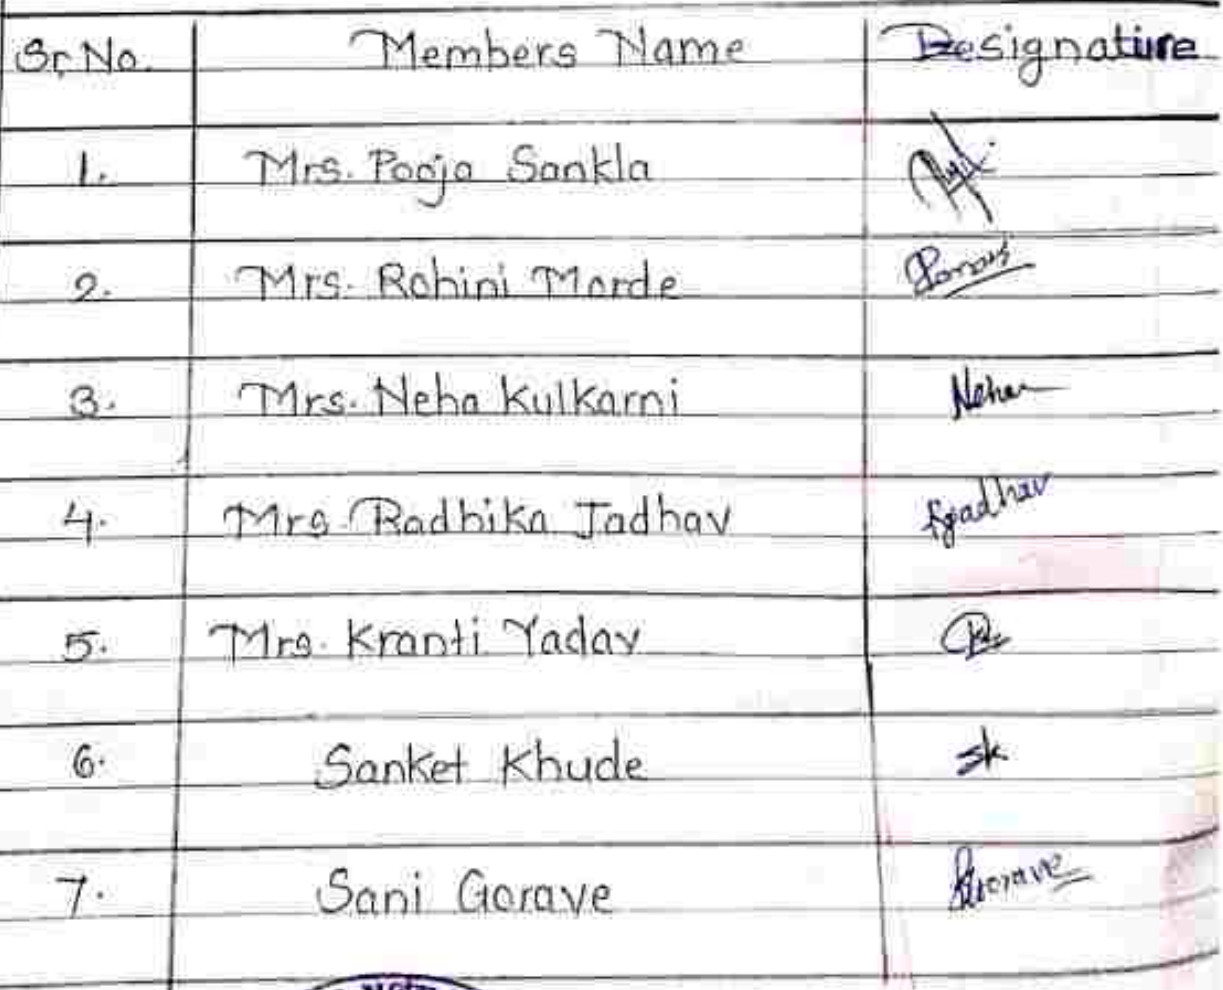 Sr. No. Members Name Designature
1. Mrs. Pooja Sankla
2. Mrs. Rohini Morde
3. Mrs. Neha Kulkarni Neha
4. Mrs. Radhika Jadhav Rjadhav
5. Mrs. Kranti Yadav
6. Sanket Khude sk
7. Sani Gorave SGorave